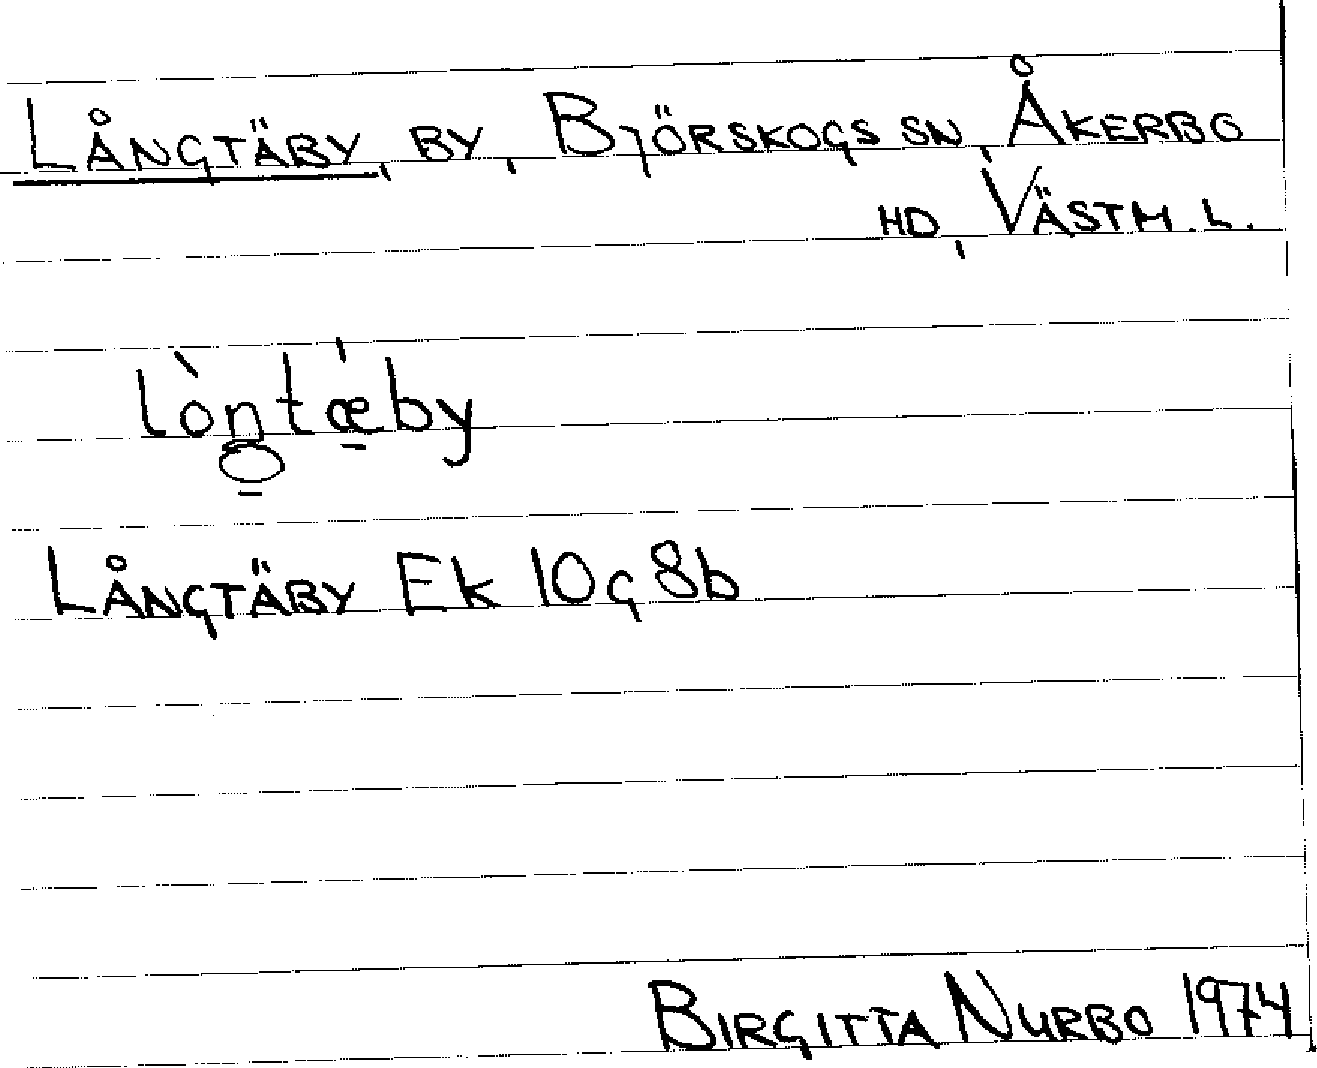 LÅNGTÄBY, BY, BJÖRSKOGS SN, ÅKERBO
HD, VÄSTM. L.
lòŋtǽ̠by
LÅNGTÄBY Ek 10g 8b
BIRGITTA NYRBO 1974